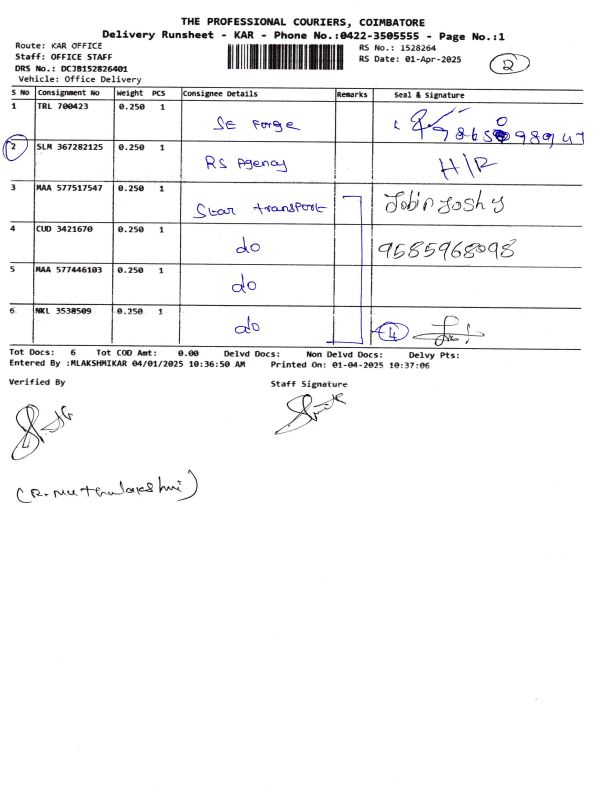 THE PROFESSIONAL COURIERS, COIMBATORE
Delivery Runsheet - KAR - Phone No.:0422-3505555 - Page No.:1
Route: KAR OFFICE
Staff: OFFICE STAFF
DRS No.: DCJB152826401
Vehicle: Office Delivery
RS No.: 1528264
RS Date: 01-Apr-2025
2
S No Consignment No Weight PCS Consignee Details Remarks Seal & Signature
1 TRL 700423 0.250 1 SE Forge
2 SLM 367282125 0.250 1 RS Agency H/R
3 MAA 577517547 0.250 1 Star transport Jobin Joshy
4 CUD 3421670 0.250 1 do 9585968098
5 MAA 577446103 0.250 1 do
6 NKL 3538509 0.250 1 do 4
Tot Docs: 6 Tot COD Amt: 0.00 Delvd Docs: Non Delvd Docs: Delvy Pts:
Entered By :MLAKSHMIKAR 04/01/2025 10:36:50 AM Printed On: 01-04-2025 10:37:06
Verified By Staff Signature
(R. Muthulakshmi)